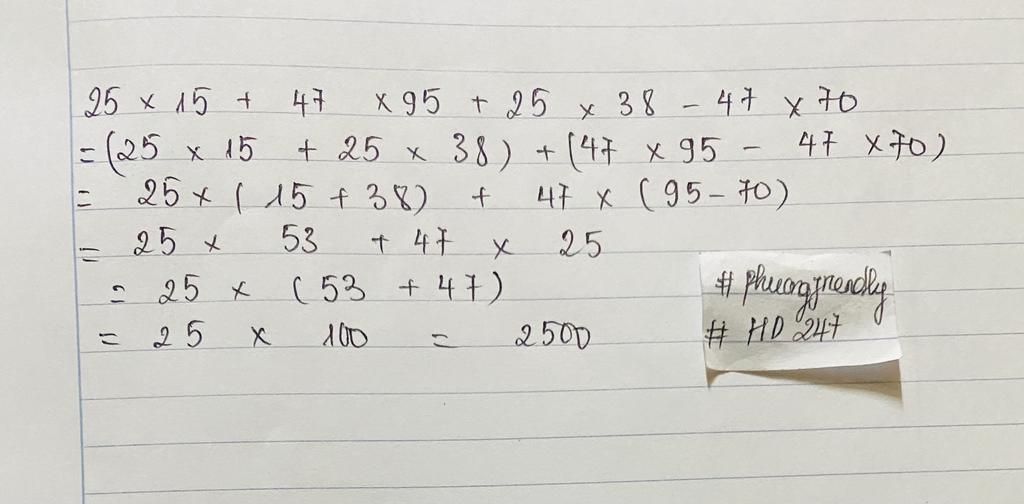 25 × 15 + 47 × 95 + 25 × 38 - 47 × 70
= (25 × 15 + 25 × 38) + (47 × 95 - 47 × 70)
= 25 × (15 + 38) + 47 × (95 - 70)
= 25 × 53 + 47 × 25
= 25 × (53 + 47)
= 25 × 100 = 2500
# phuongfriendly
# HD 247